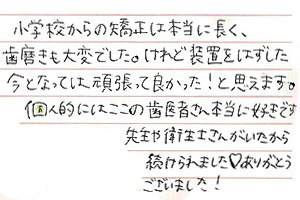 小学校からの矯正は本当に長く、
歯磨きも大変でした。けれど装置をはずした
今となっては頑張って良かった！と思えます。
個人的にはここの歯医者さん本当に好きです
先生や衛生士さんがいたから
続けられました♡ありがとう
ございました！